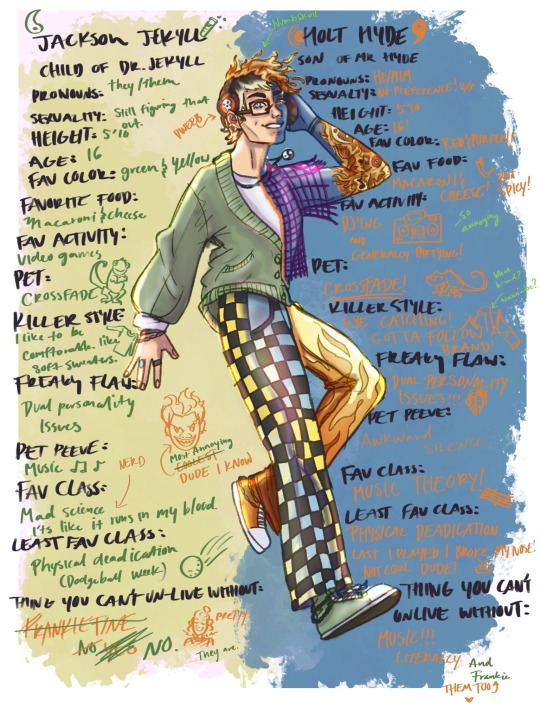 JACKSON JEKYLL
CHILD OF DR. JEKYLL
PRONOUNS: they/them
SEXUALITY: Still figuring that out.
HEIGHT: 5'10
AGE: 16
FAV COLOR: green & yellow
FAVORITE FOOD:
Macaroni & cheese
FAV ACTIVITY:
Video games
PET:
CROSSFADE
KILLER STYLE
I like to be
comfortable like
soft sweaters.
FREAKY FLAW:
Dual personality
Issues
PET PEEVE:
Music
NERD
Most Annoying
COOLEST
DUDE I KNOW
FAV CLASS:
Mad science
it's like it runs in my blood.
LEAST FAV CLASS:
Physical deadication
(Dodgeball week)
THING YOU CAN'T UN-LIVE WITHOUT:
FRANKIE TINE
NO
NO.
PRETTY
They are.
DWEEB
Numbskull
HOLT HYDE
SON OF MR HYDE
PRONOUNS: HE/HIM
SEXUALITY: NO PREFERENCE!
HEIGHT: 5'10
AGE: 16!
FAV COLOR:
FAV FOOD:
MACARONI &
CHEESE! BUT SPICY!
FAV ACTIVITY:
DJING
AND
GENERALLY PARTYING!
So annoying
PET:
CROSSFADE!
KILLER STYLE:
EYE CATCHING!
GOTTA FOLLOW
BRAND!
What brand?
FREAKY FLAW:
DUAL PERSONALITY
ISSUES!!!
PET PEEVE:
AWKWARD
SILENCE
FAV CLASS:
MUSIC THEORY!
LEAST FAV CLASS:
PHYSICAL DEADICATION
LAST I PLAYED I BROKE MY NOSE!
NOT COOL DUDE!
THING YOU CAN'T
UNLIVE WITHOUT:
MUSIC!!!
LITERALLY
And
Frankie
THEM TOO!